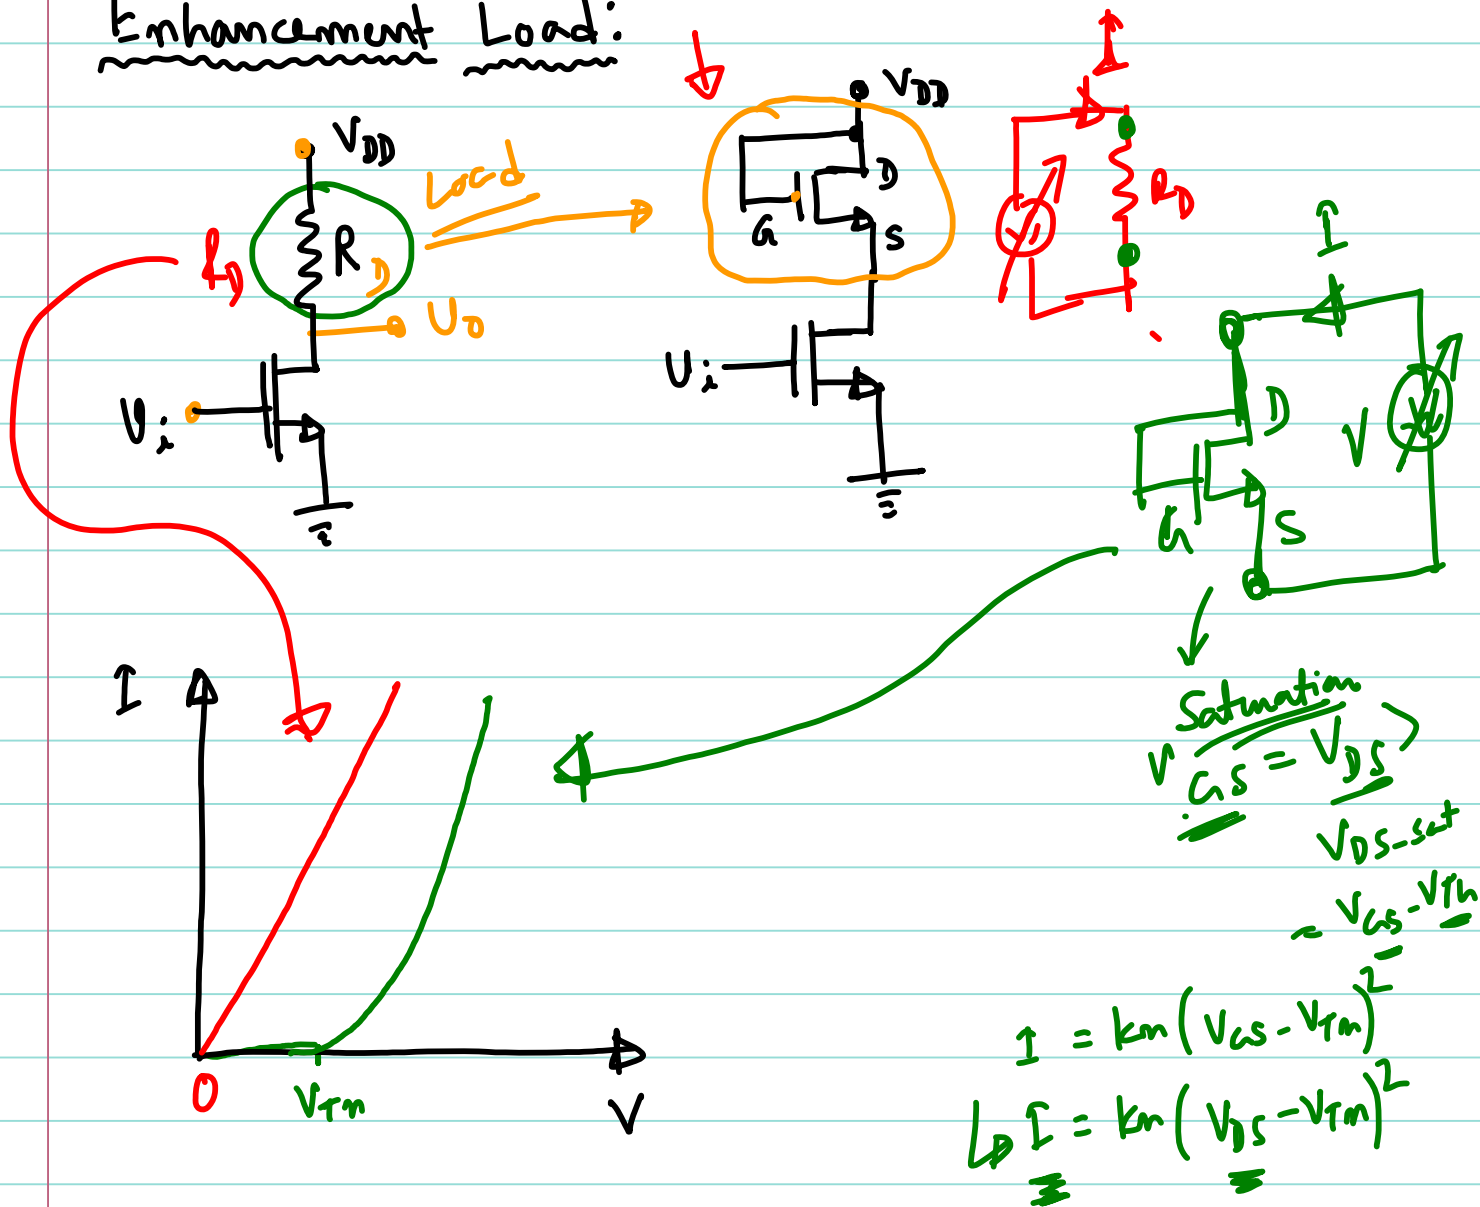 Enhancement Load:
VDD
Load
RD
RD
Vo
Vi
VDD
D
G
S
Vi
I
V
RD
I
D
G
S
V
V
Saturation
VGS = VDS >
VDS-sat
= VGS - VTn
I = kn(VGS - VTn)²
↳ I = kn(VDS - VTn)²
I
0
VTn
V